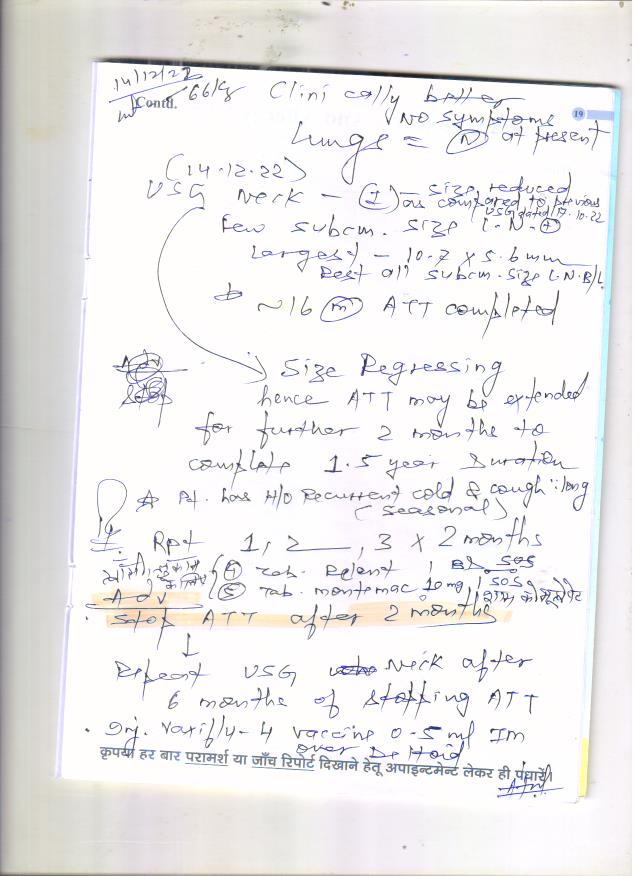 14/12/22
Contd.
66kg Clinically better
19
No symptoms
Lungs = (N) at present
(14.12.22)
USG Neck - size reduced
as compared to previous
USG dated 17.10.22
Few subcm. size L.N. +
Largest - 10.7 x 5.6 mm
Rest all subcm. size L.N. B/L
~16 (m) ATT completed
Adv
Stop
Size Regressing
hence ATT may be extended
for further 2 months to
complete 1.5 year Duration
Pt. has H/O Recurrent cold & cough : long
(seasonal)
Rpt 1, 2, 3 x 2 months
(4) Tab. Relent 1 SOS
(5) Tab. Montemac 10mg 1 SOS
Adv
Stop ATT after 2 months
↓
Repeat USG Neck after
6 months of stopping ATT
. Inj. Vaxiflu-4 vaccine 0.5 ml IM
over Deltoid
कृपया हर बार परामर्श या जाँच रिपोर्ट दिखाने हेतू अपाइन्टमेन्ट लेकर ही पधारें।